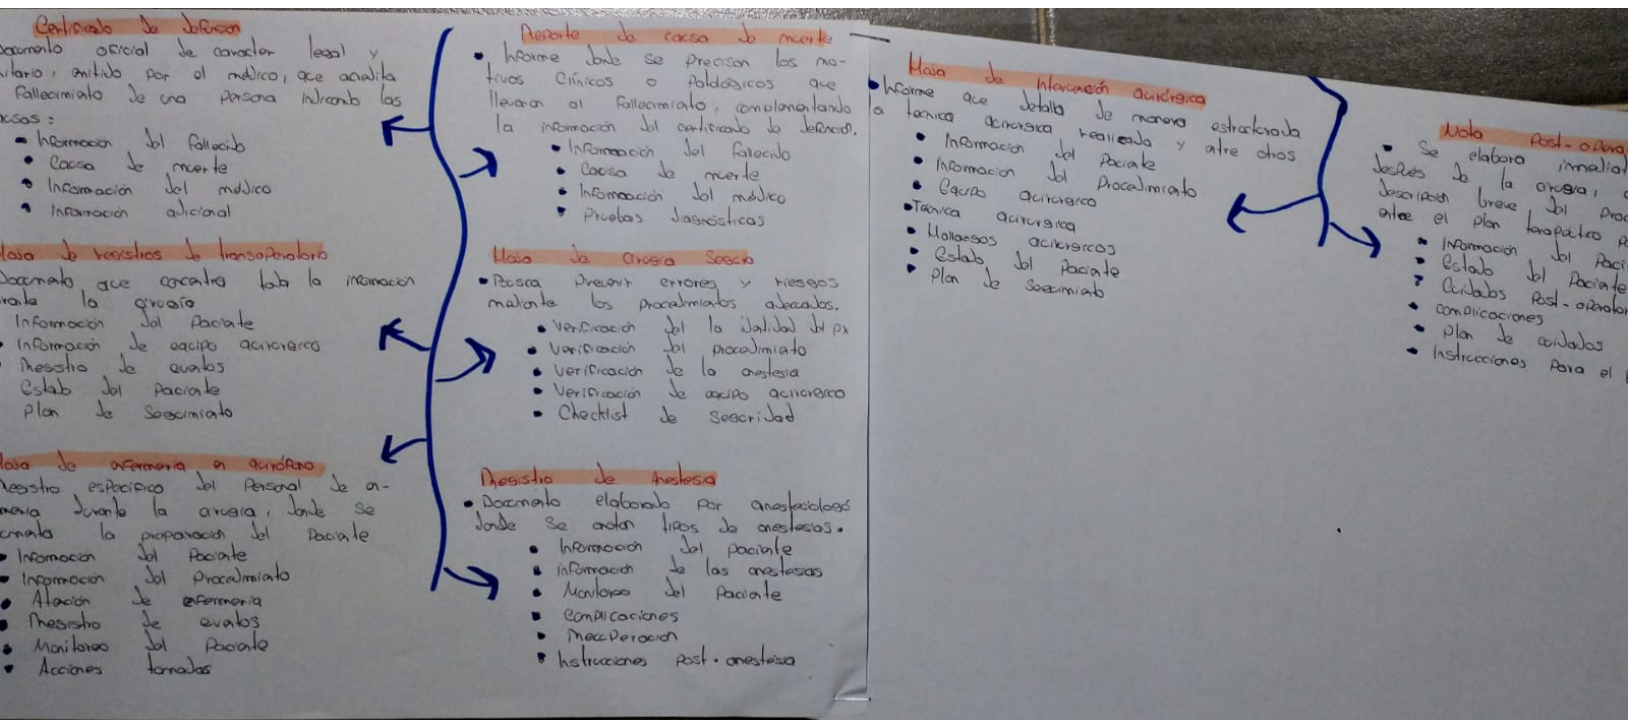 Certificado de defunción
Documento oficial de caracter legal y
emitido por el médico, que acredita
Fallecimiento de una persona indicando las
causas:
• Información del fallecido
• Causa de muerte
• Información del médico
• Información adicional
Hoja de registros de transoperatorio
Documento que concentra toda la información
durante la cirugía
Información del Paciente
• Información de equipo quirúrgico
• Registro de eventos
Estado del Paciente
Plan de Seguimiento
Hoja de enfermería en quirófano
Registro específico del Personal de en-
durante la cirugía, donde se
la preparación del Paciente
• Información del Paciente
• Información del Procedimiento
• Atención de enfermería
• Registro de eventos
• Monitoreo del Paciente
• Acciones tomadas
Reporte de causa de muerte
• Informe donde se precisan los mo-
tivos Clínicos o Patológicos que
llevaron al fallecimiento, complementando
la información del certificado de defunción.
• Información del fallecido
• Causa de muerte
• Información del médico
• Pruebas diagnósticas
Hoja de Cirugía Segura
• Busca Prevenir errores y riesgos
mediante los procedimientos adecuados.
• Verificación del la identidad del px
• Verificación del procedimiento
• Verificación de la anestesia
• Verificación de equipo quirúrgico
• Checklist de Seguridad
Registro de Anestesia
• Documento elaborado por anestesiólogos
donde se anotan tipos de anestesias.
• Información del paciente
• información de las anestesias
• Monitoreo del Paciente
• Complicaciones
• Recuperación
• Instrucciones Post-anestesia
Hoja de Intervención quirúrgica
• Informe que detalla de manera estructurada
la técnica quirúrgica realizada y entre otros
• Información del Paciente
• Información del Procedimiento
• Equipo quirúrgico
• Técnica quirúrgica
• Hallazgos quirúrgicos
• Estado del Paciente
• Plan de Seguimiento
Nota Post-opera
• Se elabora inmediat
después de la cirugía,
descripción breve del Proc
entre el plan terapéutico
• Información del Paci
• Estado del Paciente
• Cuidados Post-operator
• complicaciones
• Plan de cuidados
• Instrucciones Para el